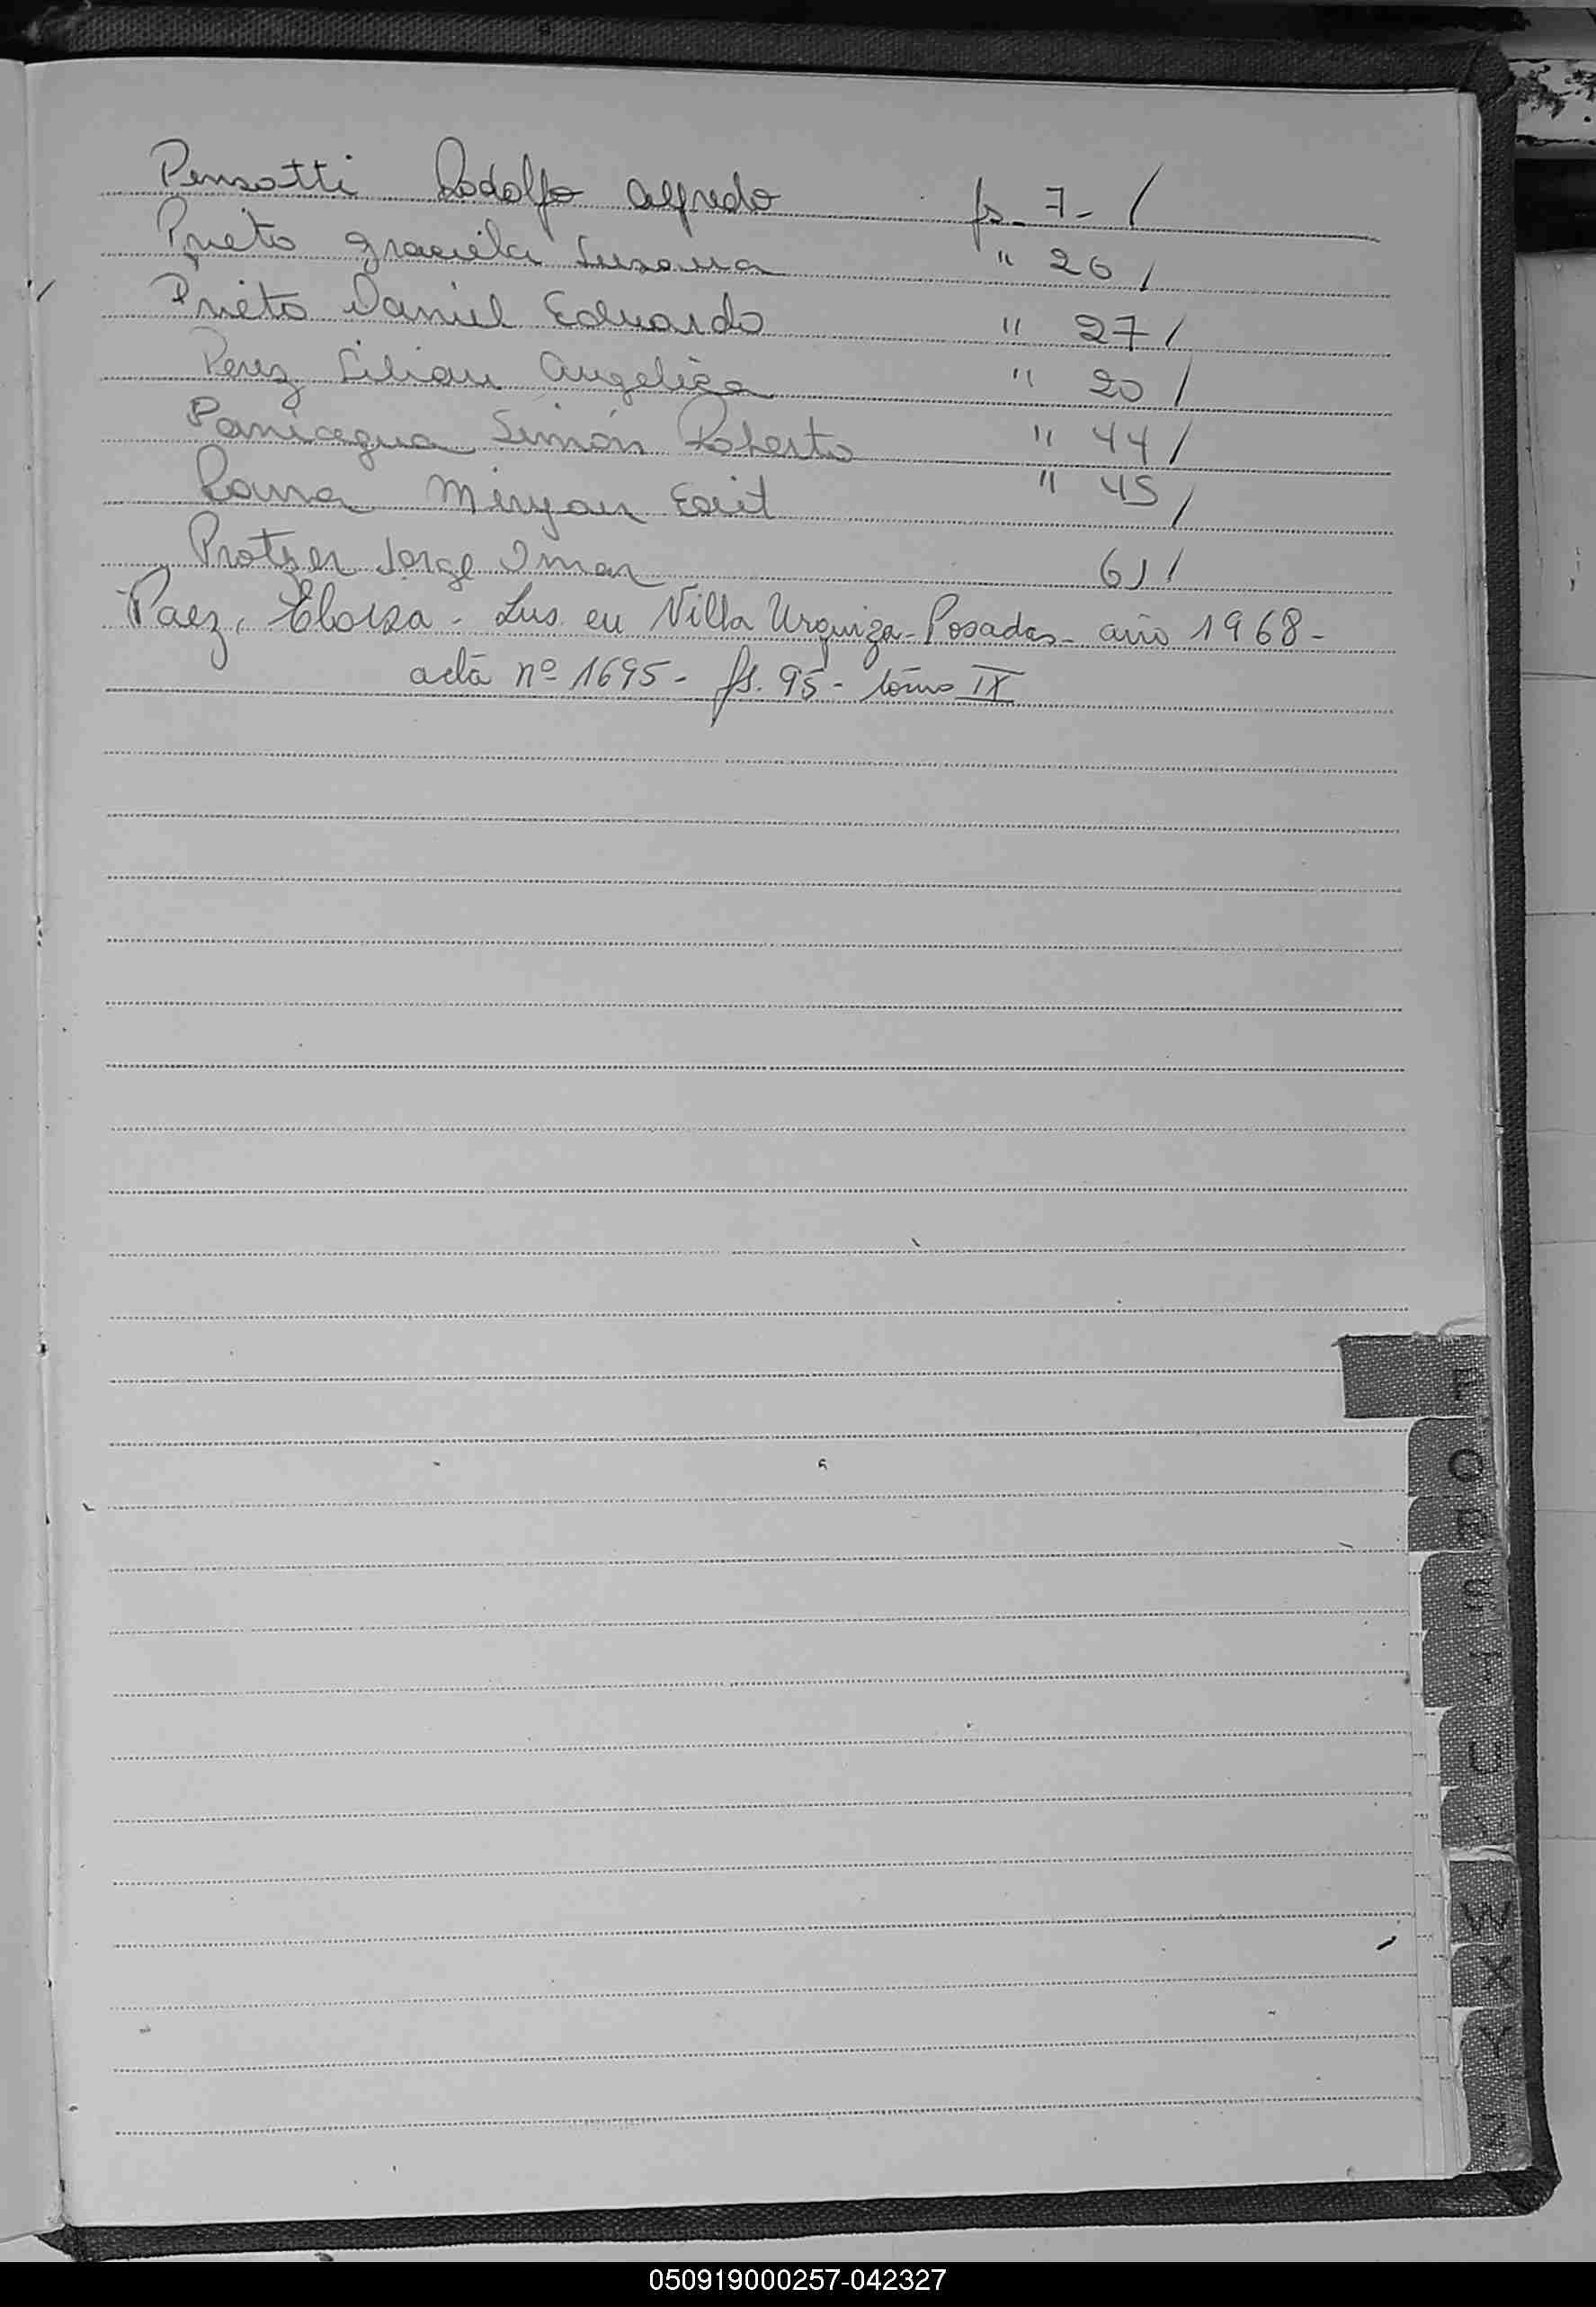 Pensotti Rodolfo Alfredo fs. 7- /
Prieto Graciela Susana " 26 /
Prieto Daniel Eduardo " 27 /
Perez Lilian Angelica " 20 /
Paniagua Simón Roberto " 44 /
Parra Miryan Edit " 45 /
Protzer Jorge Omar 61 /
Paez, Eloisa - Ins. en Villa Urquiza - Posadas - año 1968 -
acta nº 1695 - fs. 95 - tomo IX
P
Q
R
S
T
U
V
W
X
Y
Z
050919000257-042327